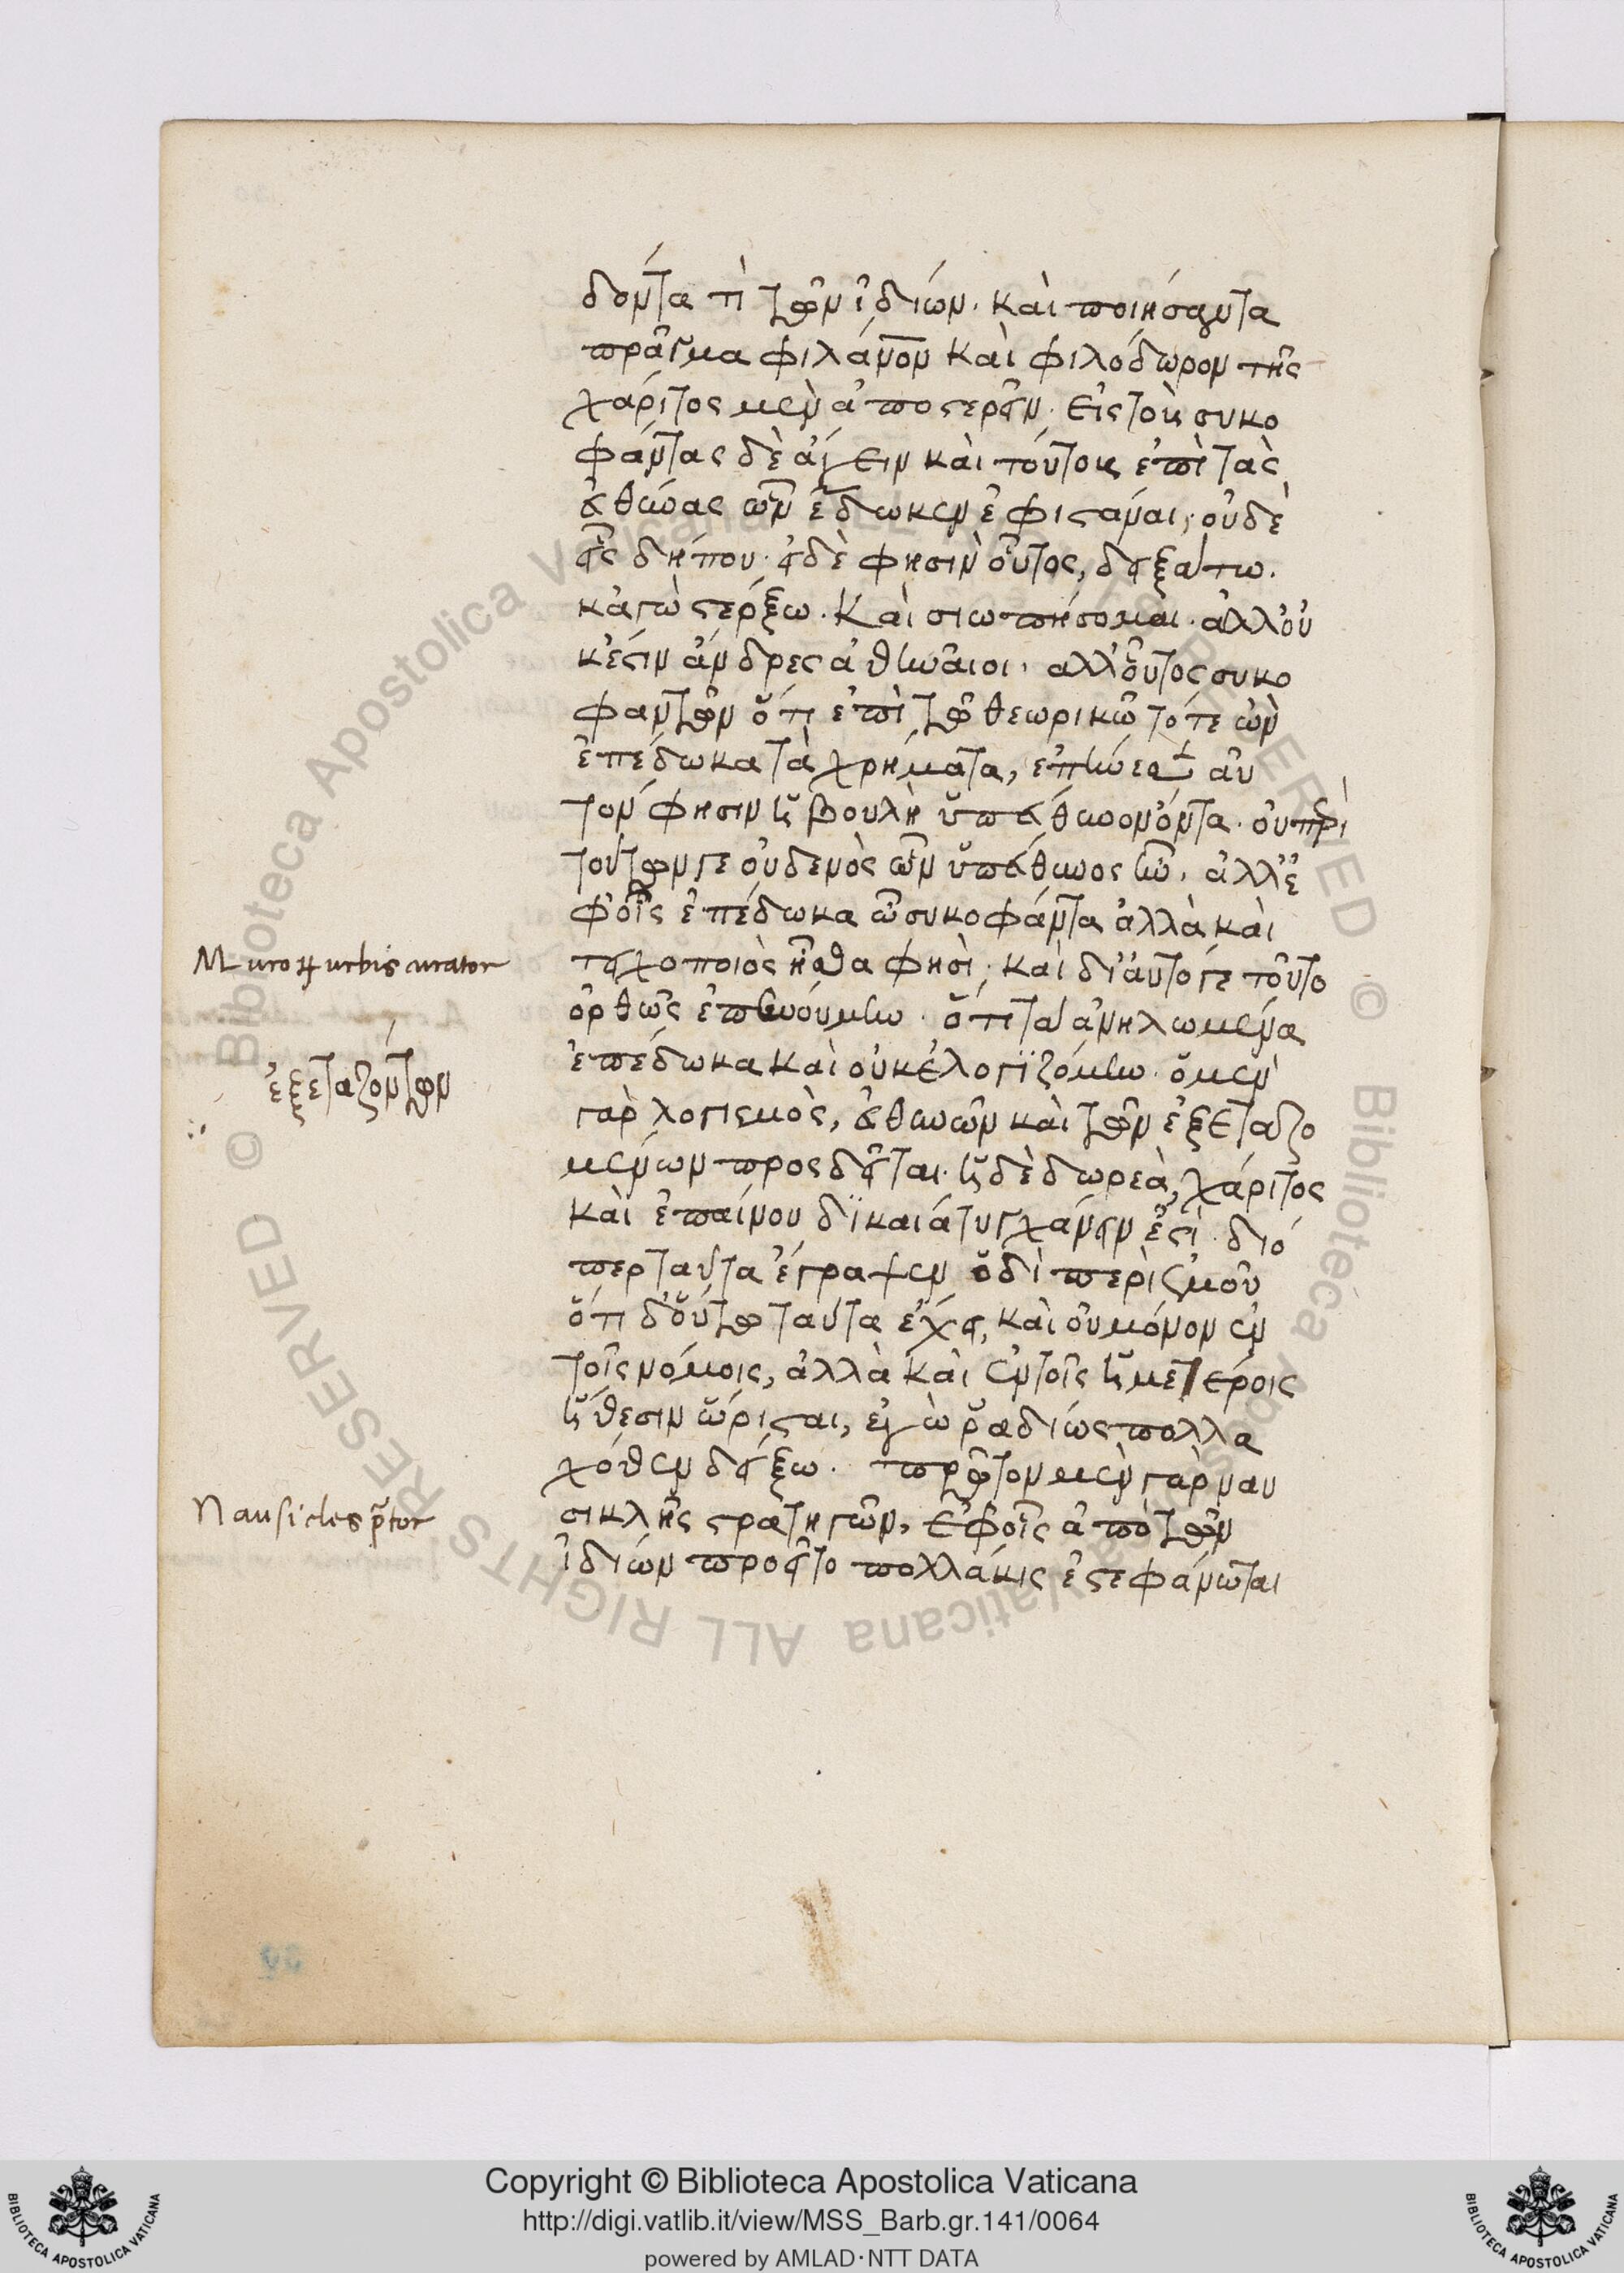 δόντα τὶ τῶν ἰδίων. καὶ ποιήσαντα
πρᾶγμα φιλάνον καὶ φιλόδωρον τῆς
χάριτος μὲν ἀποστερεῖν. εἰς τοὺς συκο
φάντας δὲ ἄγειν καὶ τούτους ἐπὶ τὰς
εὐθύνας ὧν ἔδωκεν ἐφιστάναι, οὐδὲ
εἷς δήπου. εἰ δὲ φησὶν οὗτος, δειξάτω.
κἀγὼ στέρξω. Καὶ σιωπήσομαι. ἀλλ' οὐ
κ ἔστιν ἄνδρες ἀθηναῖοι. ἀλλ' οὗτος συκο
φαντῶν ὅτι ἐπὶ τῷ θεωρικῷ τότε ὢν
ἐπέδωκα τὰ χρήματα, ἐπήνεσεν αὐ
τόν φησιν ἡ βουλὴ ὑπεύθυνον ὄντα. οὐ περὶ
τούτων γε οὐδενὸς ὧν ὑπεύθυνος ἦν. ἀλλ' ἐ
φ' οἷς ἐπέδωκα ὦ συκοφάντα ἀλλὰ καὶ
τειχοποιὸς ἦσθα φησί. καὶ δι' αὐτό γε τοῦτο
ὀρθῶς ἐπῃνούμην. ὅτι τἀνηλωμένα
ἐπέδωκα καὶ οὐκ ἐλογϊζόμην. ὁ μὲν
γὰρ λογισμὸς, εὐθυνῶν καὶ τῶν ἐξεταζο
μένων προσδεῖται. ἡ δὲ δωρεὰ, χάριτος
καὶ ἐπαίνου δϊκαία τυγχάνειν ἐστί. διό
περ ταῦτα ἔγραψεν ὁδὶ περὶ ἐμοῦ
ὅτι δ' οὕτω ταῦτα ἔχει, καὶ οὐ μόνον ἐν
τοῖς νόμοις, ἀλλὰ καὶ ἐν τοῖς ἡμετέροις
ἤθεσιν ὥρισται, ἐγὼ ῥαδίως πολλα
χόθεν δείξω. πρῶτον μὲν γὰρ ναυ
σικλῆς στρατηγῶν, ἐφ' οἷς ἀπὸ τῶν
ἰδίων προεῖτο πολλάκις ἐστεφάνωται
Muroꝝ urbis curator
ἐξεταζόντων
Nausicles p̃tor
Copyright © Biblioteca Apostolica Vaticana
http://digi.vatlib.it/view/MSS_Barb.gr.141/0064
powered by AMLAD·NTT DATA
BIBLIOTECA APOSTOLICA VATICANA
BIBLIOTECA APOSTOLICA VATICANA
© Biblioteca Apostolica Vaticana ALL RIGHTS RESERVED
© Biblioteca Apostolica Vaticana ALL RIGHTS RESERVED